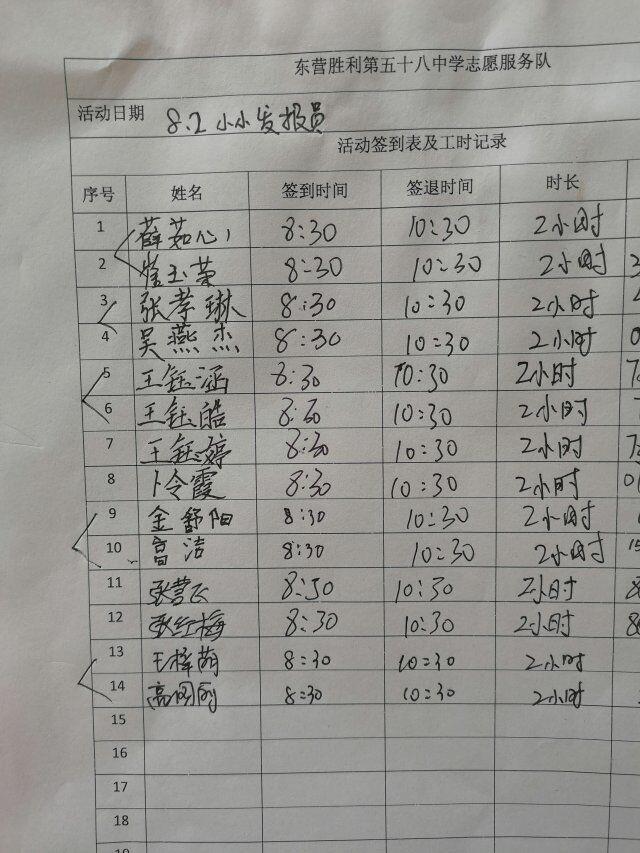 东营胜利第五十八中学志愿服务队
活动日期 8.2 小小发报员
活动签到表及工时记录
序号 姓名 签到时间 签退时间 时长
1 薛茹心 8:30 10:30 2小时
2 崔玉荣 8:30 10:30 2小时
3 张孝琳 8:30 10:30 2小时
4 吴燕杰 8:30 10:30 2小时
5 王钰涵 8:30 10:30 2小时
6 王钰皓 8:30 10:30 2小时
7 王钰婷 8:30 10:30 2小时
8 卜令霞 8:30 10:30 2小时
9 金舒阳 8:30 10:30 2小时
10 高洁 8:30 10:30 2小时
11 张营飞 8:30 10:30 2小时
12 张红梅 8:30 10:30 2小时
13 王梓萌 8:30 10:30 2小时
14 8:30 10:30 2小时
15
16
17
18